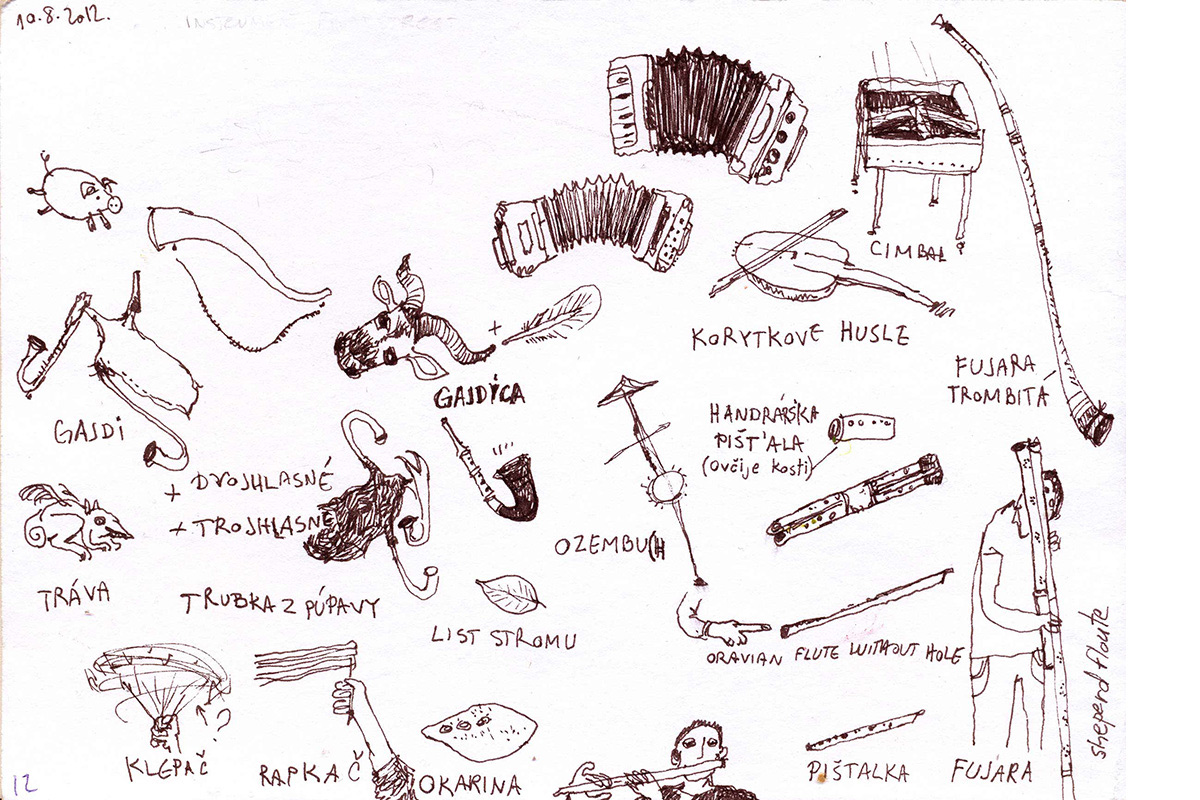 10.8.2012.
INSTRUMENT FROM STREET
CIMBAL
KORYTKOVE HUSLE
FUJARA
TROMBITA
GAJDICA
HANDRÁRSKA
PIŠŤALA
(ovčije kosti)
GAJDI
+ DVOJHLASNÉ
+ TROJHLASNÉ
OZEMBUCH
TRÁVA
TRUBKA Z PÚPAVY
LIST STROMU
ORAVIAN FLUTE WITHOUT HOLE
sheperd floute
?
KLEPAČ
RAPKAČ
OKARINA
PIŠTALKA
FUJARA
12